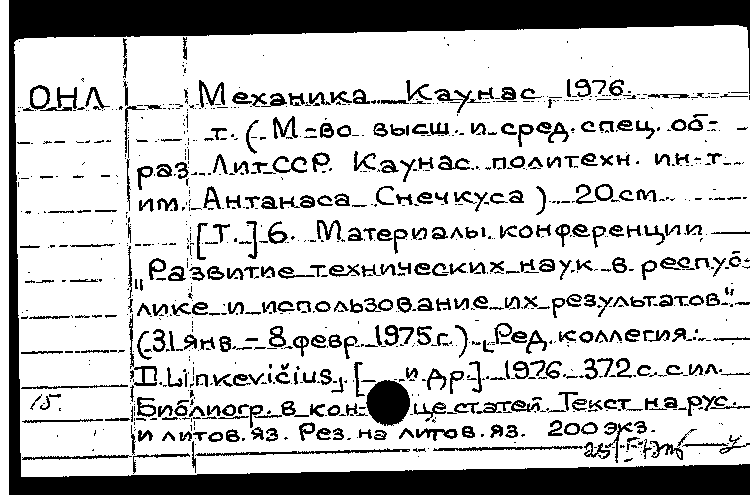 ОНЛ Механика Каунас, 1976.
т. (М-во высш. и сред. спец. об-
раз ЛитССР. Каунас. политехн. ин-т
им. Антанаса Снечкуса) 20 см
[Т.] 6. Материалы конференции
„Развитие технических наук в респуб-
лике и использование их результатов"
(31 янв - 8 февр 1975 г.) Ред. коллегия:
Linkevičius, [ и др.] 1976. 372 с. с ил.
15. Библиогр. в кон- це статей Текст на рус.
и литов. яз. Рез. на литов. яз. 200 экз.